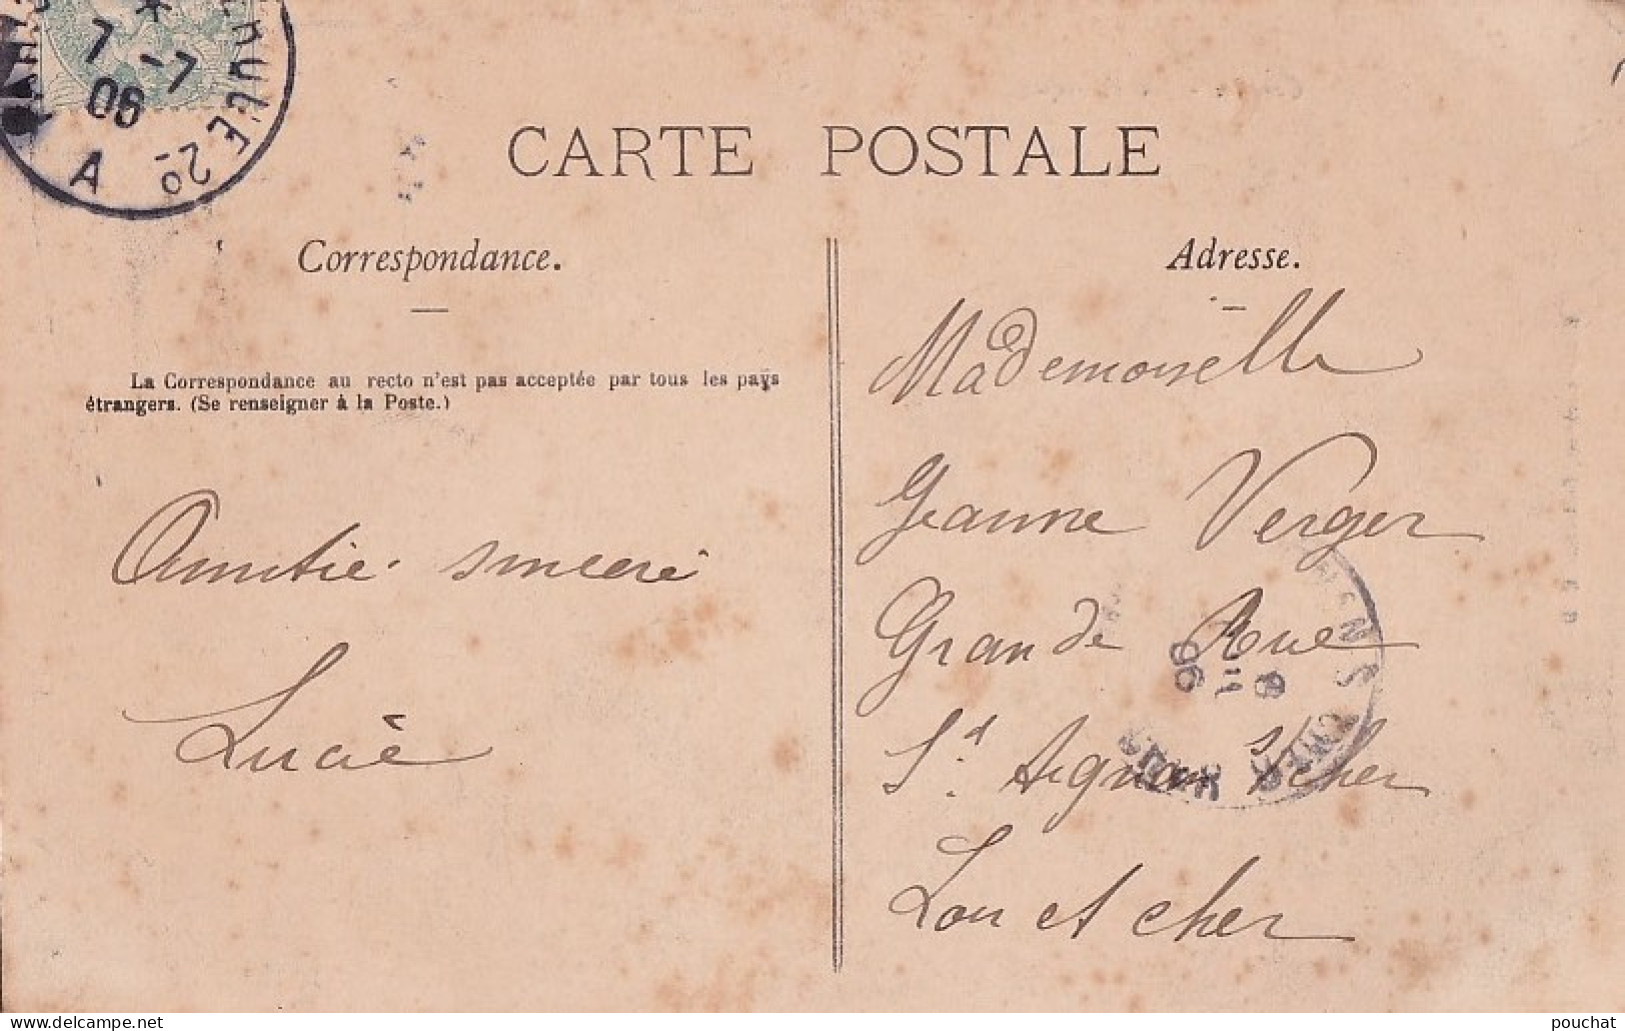 7 -7
06
A
CARTE POSTALE
Correspondance.
La Correspondance au recto n'est pas acceptée par tous les pays
étrangers. (Se renseigner à la Poste.)
Amitié sincère
Lucie
Adresse.
Mademoiselle
Jeanne Verger
Grande Rue
St. Aignan s/ cher
Loir et cher
8
06
delcampe.net
pouchat